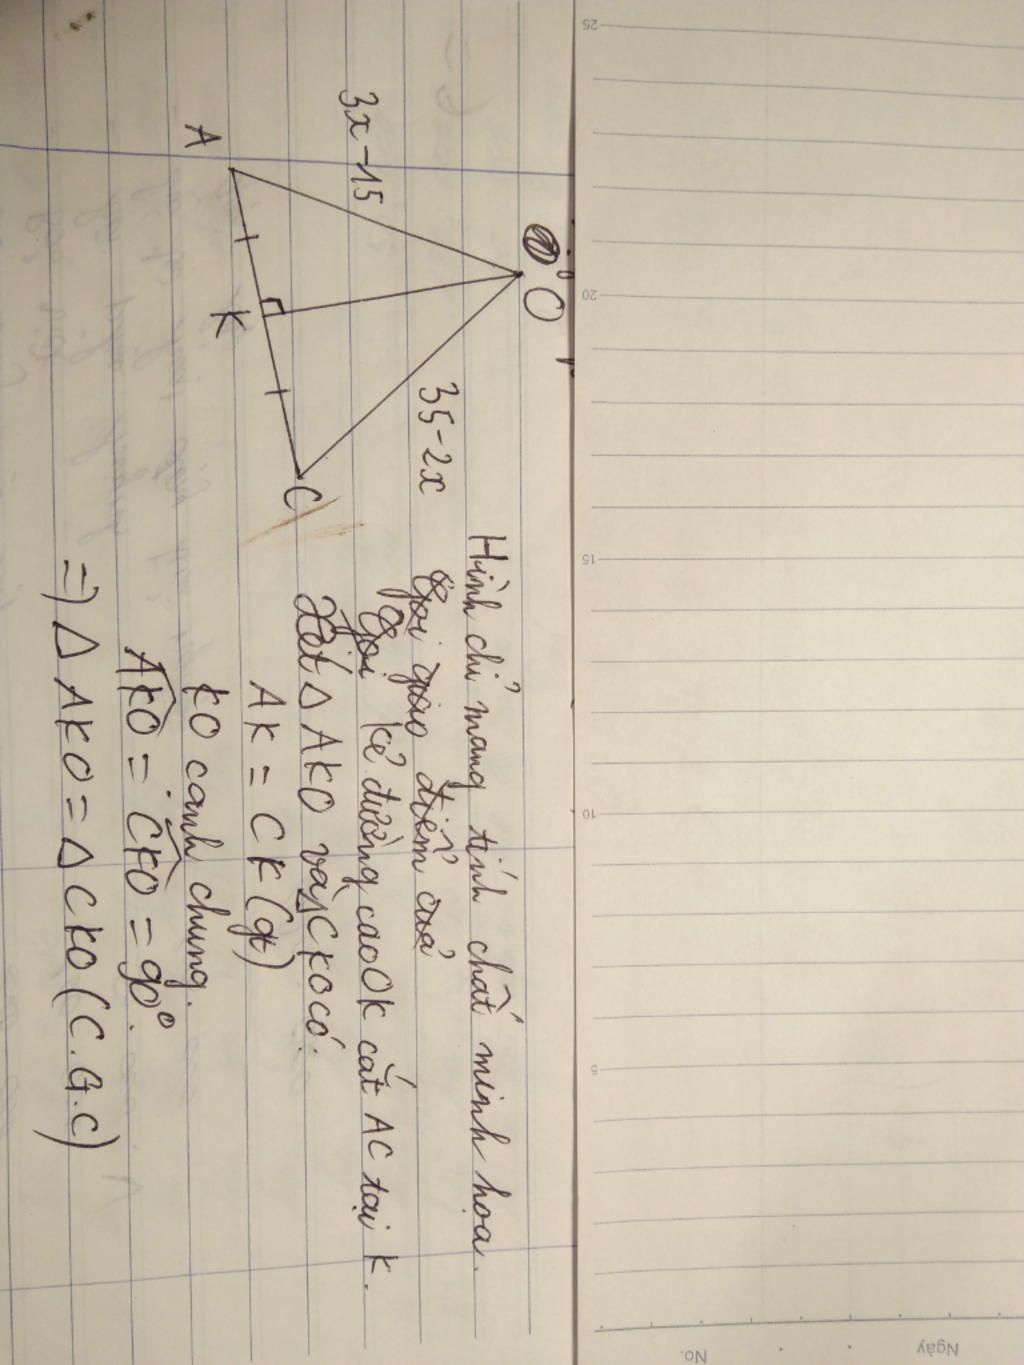 O
3x - 15
35 - 2x
A
K
C
Hình chỉ mang tính chất minh họa.
Gọi giao điểm của
Gọi kẻ đường cao OK cắt AC tại K.
Xét Δ AKO và Δ CKO có:
AK = CK (gt)
KO cạnh chung.
AKO = CKO = 90°.
=) Δ AKO = Δ CKO (C.G.C)
25
20
15
10
5
No.
Ngày